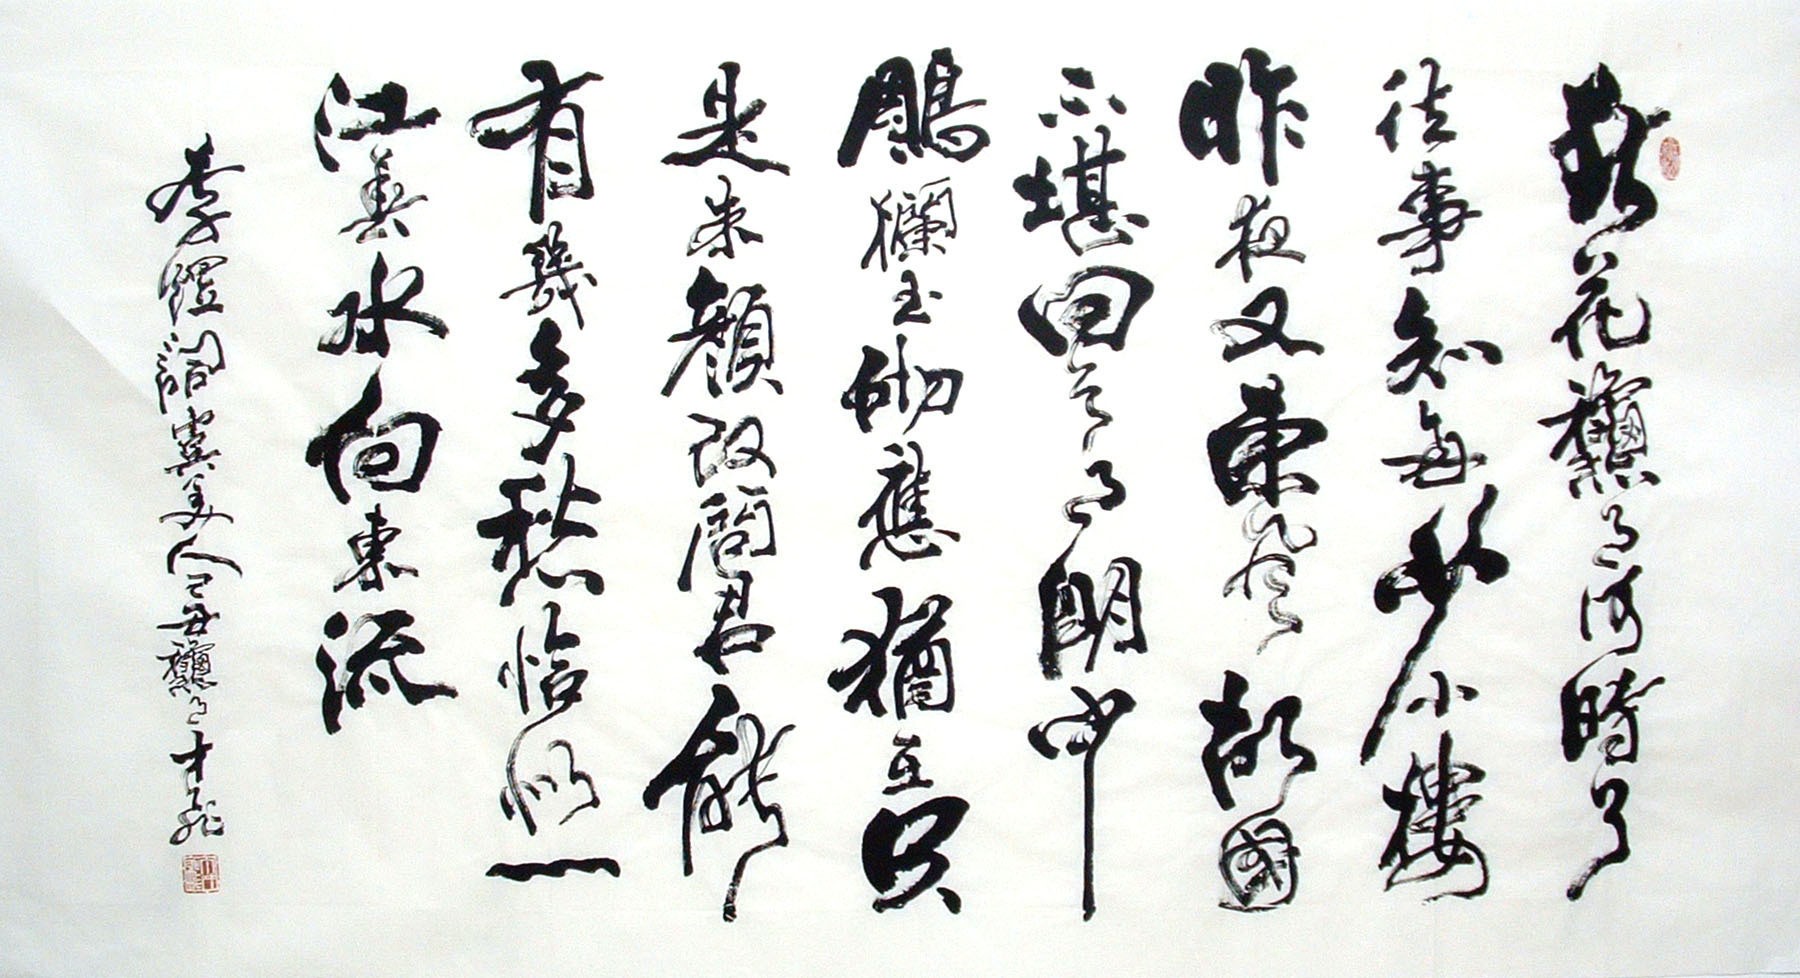 春花龝月何時了
往事知多少小樓
昨夜又東風故國
不堪回首月明中
鵰欄玉砌應猶在只
是朱顏改問君能
有幾多愁恰似一
江春水向東流
李煜詞虞美人己丑龝月才